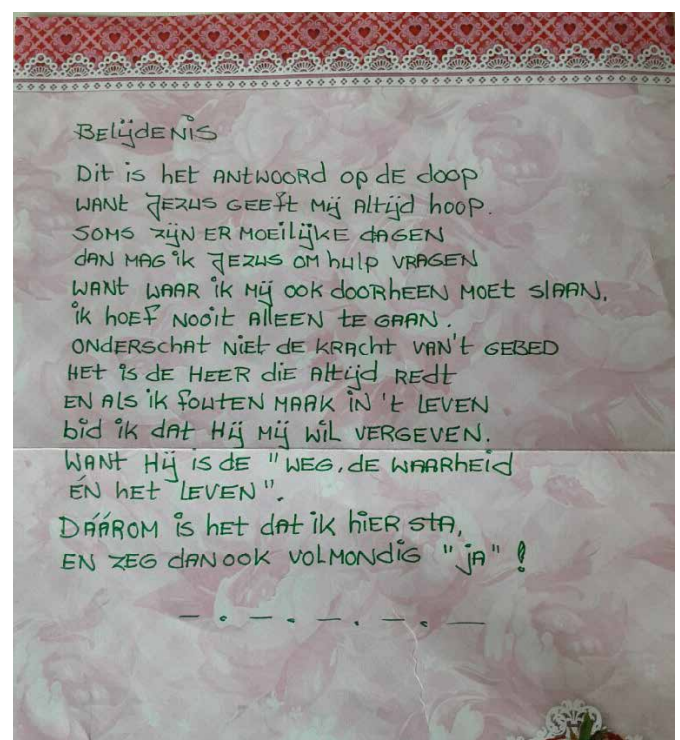 Belijdenis
Dit is het antwoord op de doop
want Jezus geeft mij altijd hoop.
Soms zijn er moeilijke dagen
dan mag ik Jezus om hulp vragen
want waar ik mij ook doorheen moet slaan,
ik hoef nooit alleen te gaan.
Onderschat niet de kracht van't gebed
Het is de Heer die altijd redt
en als ik fouten maak in 't leven
bid ik dat Hij mij wil vergeven.
Want Hij is de "weg, de waarheid
én het leven".
Dáárom is het dat ik hier sta,
en zeg dan ook volmondig "ja"!